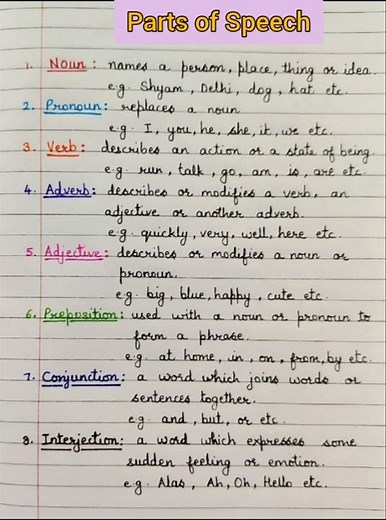 Parts of Speech
1. Noun : names a person, place, thing or idea.
e.g. Shyam, Delhi, dog, hat etc.
2. Pronoun : replaces a noun
e.g. I, you, he, she, it, we etc.
3. Verb : describes an action or a state of being.
e.g. run, talk, go, am, is, are etc.
4. Adverb : describes or modifies a verb, an
adjective or another adverb.
e.g. quickly, very, well, here etc.
5. Adjective : describes or modifies a noun or
pronoun.
e.g. big, blue, happy, cute etc.
6. Preposition : used with a noun or pronoun to
form a phrase.
e.g. at home, in, on, from, by etc.
7. Conjunction : a word which joins words or
sentences together.
e.g. and, but, or etc.
8. Interjection : a word which expresses some
sudden feeling or emotion.
e.g. Alas, Ah, Oh, Hello etc.